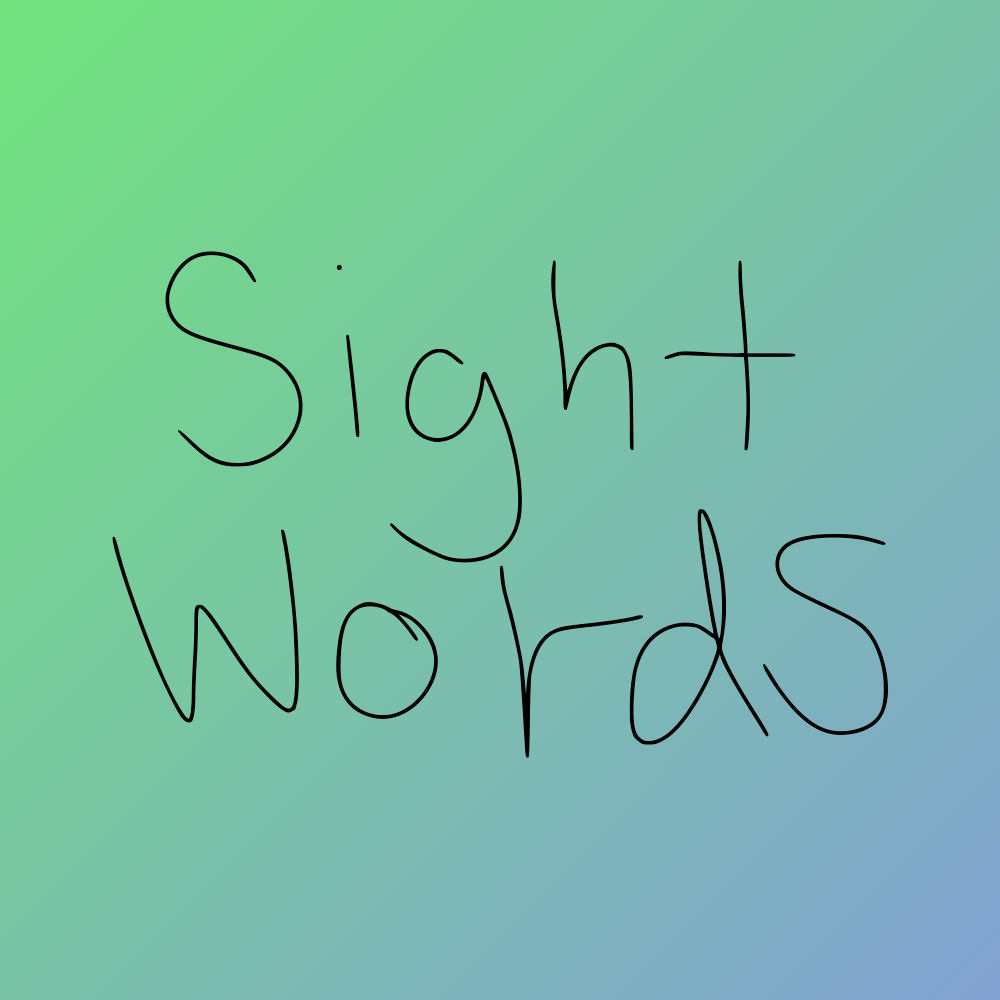 Sight
Words